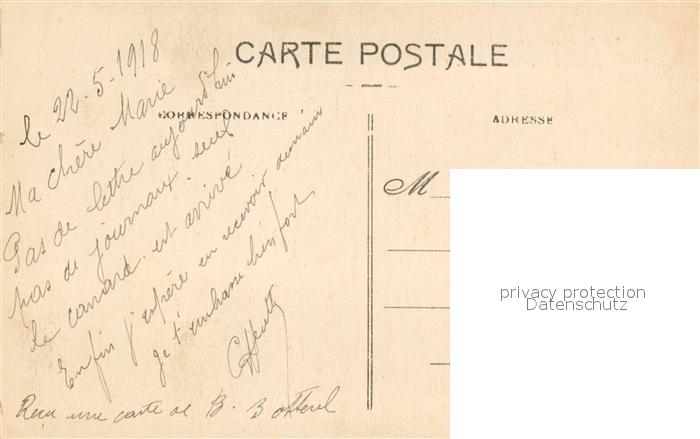 CARTE POSTALE
CORRESPONDANCE
ADRESSE
M
le 22-5-1918
Ma chère Marie
Pas de lettre aujourd'hui
pas de journaux. seul
le canard est arrivé
Enfin j'espère en recevoir demain
je t'embrasse bien fort
Reçu une carte de B.
privacy protection
Datenschutz